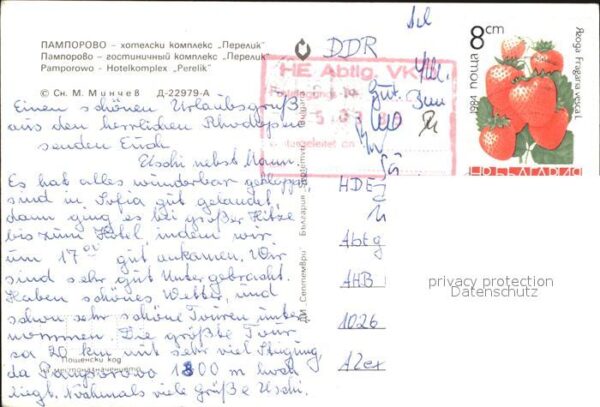 ПАМПОРОВО – хотелски комплекс „Перелик"
Пампорово – гостиничный комплекс „Перелик"
Pamporowo - Hotelkomplex "Perelik"
© Сн. М. Минчев Д-22979-А
Einen schönen Urlaubsgruß
aus den herrlichen Rhodopen
senden Euch
Uschi nebst Mann.
Es hat alles wunderbar geklappt,
sind in Sofia gut gelandet,
dann ging es bei großer Hitze
bis zum Hotel, indem wir
um 17 00 gut ankamen. Wir
sind sehr gut untergebracht.
Haben schönes Wetter, und
schon sehr schöne Touren unter
nommen. Die größte Tour
ca 20 km mit sehr viel Stiegung,
da Pamporowo 1800 m hoch
liegt. Nochmals viele Grüße Uschi.
Пощенски код
на местоназначението
ДИ „Септември"
България
DDR
HE Abtlg. VK
HDE
Abtg
AHB
1026
Alex
8 cm
поща
1984
Ягода Fragaria vesca L.
privacy protection
Datenschutz